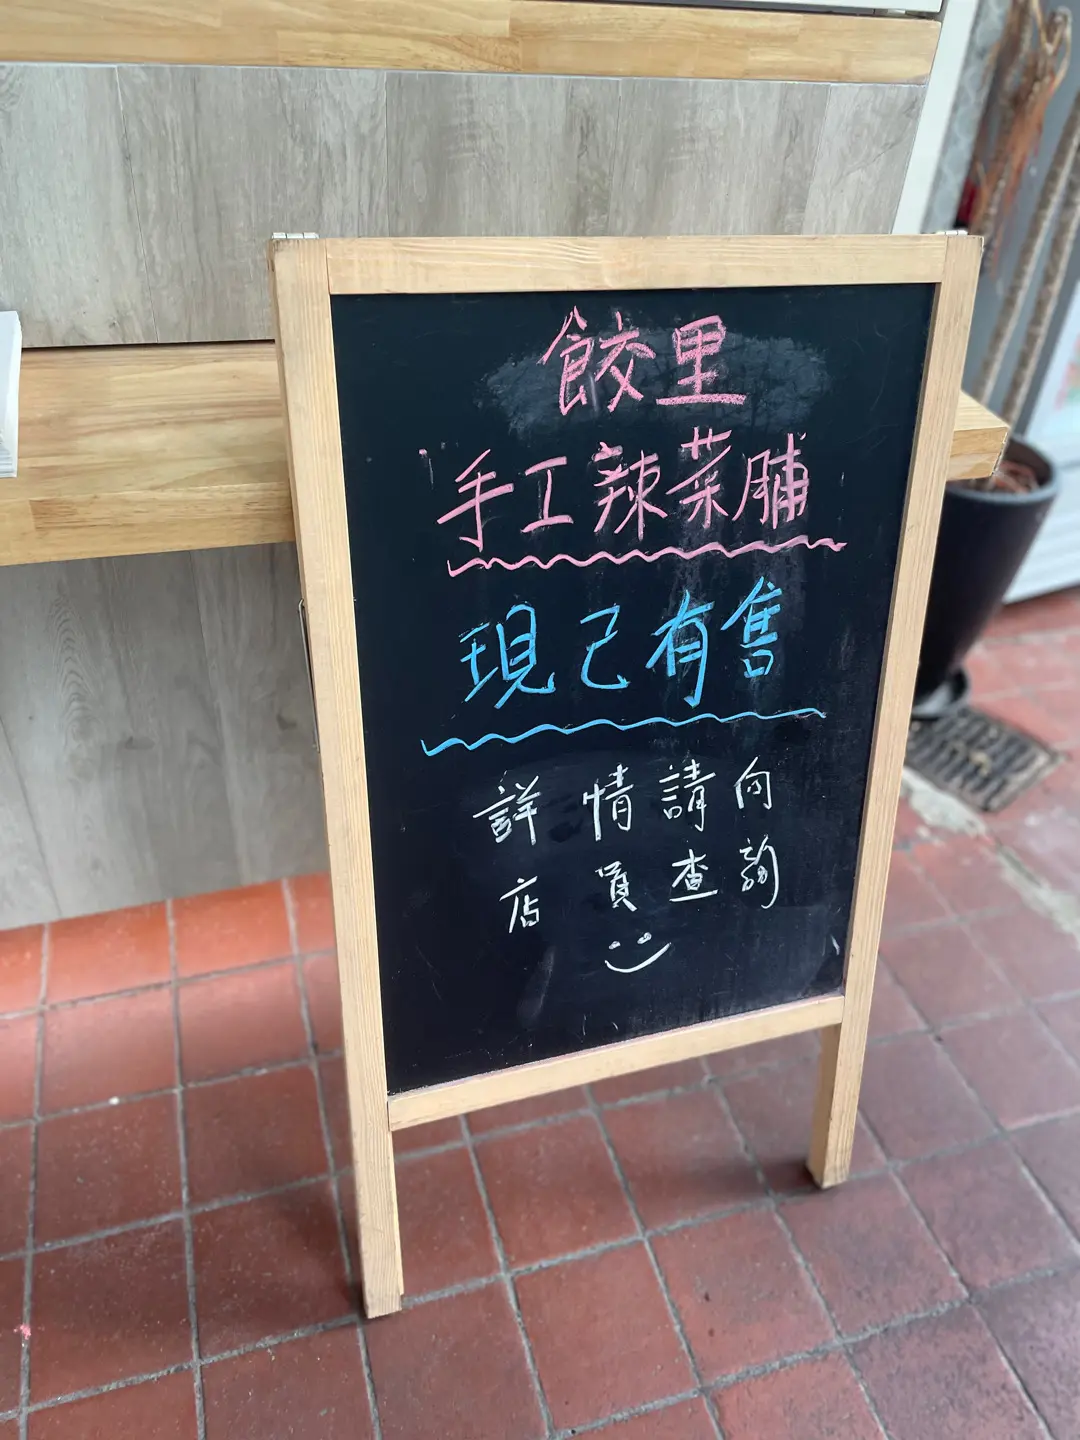 餃里
手工辣菜脯
現已有售
詳情請向
店員查詢